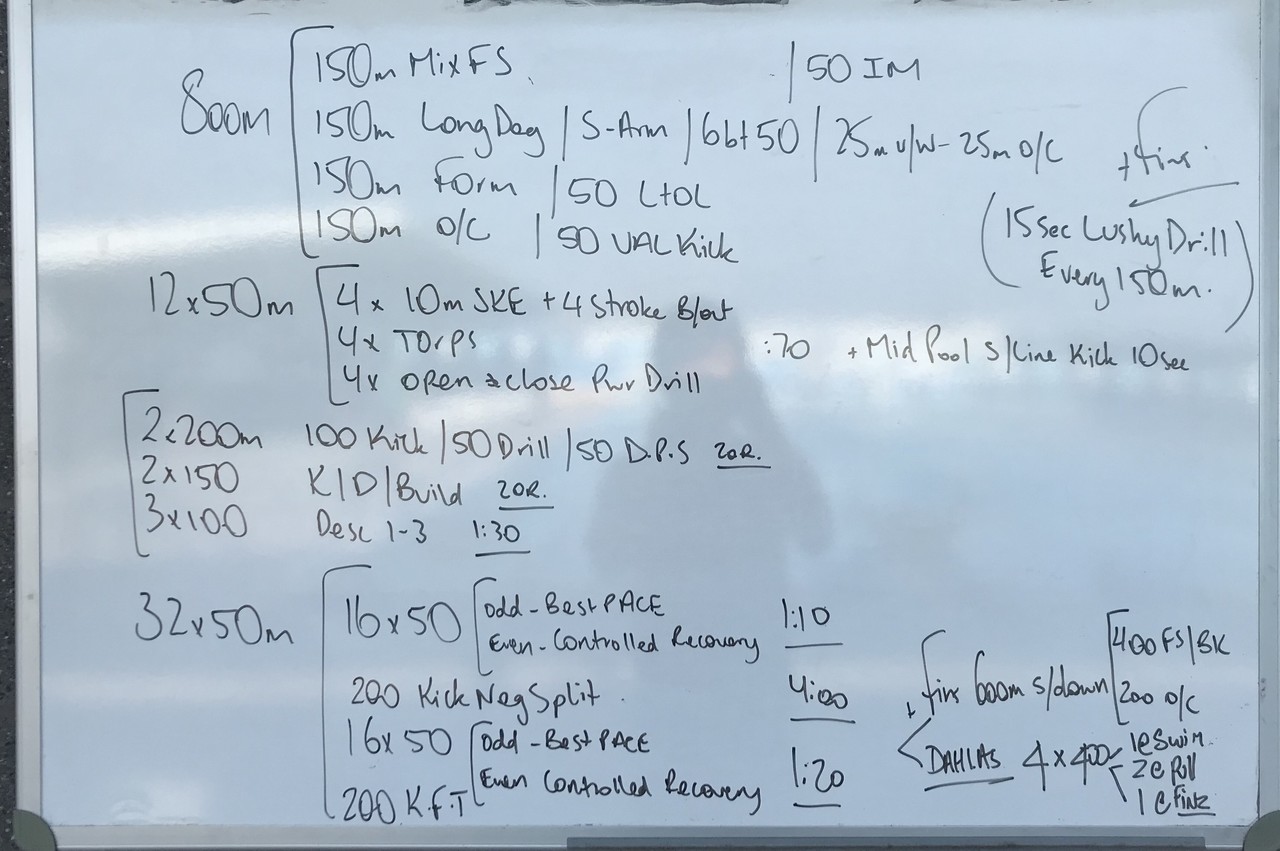 800m
150m MixFS / 50 IM
150m LongDog / S-Arm / 6bt50 / 25m u/w - 25m O/C + fins
150m Form / 50 LtOL
150m O/C / 50 UAL Kick
(15sec Lushy Drill
Every 150m.)
12x50m
4 x 10m SKE + 4 Stroke B/out
4x TOrPS :70 + Mid Pool S/Line Kick 10sec
4x open & close Pwr Drill
2x200m 100 Kick / 50 Drill / 50 D.P.S 20R.
2x150 K/D/Build 20R.
3x100 Desc 1-3 1:30
32x50m
16x50 odd - Best PACE 1:10
Even - Controlled Recovery
200 Kick Neg Split 4:00
16x50 odd - Best PACE 1:20
Even Controlled Recovery
200 K.F.T
+ fins 600m s/down
400 FS/BK
200 O/C
DAHLAS 4x400
1@Swim
2@Pull
1@Finz